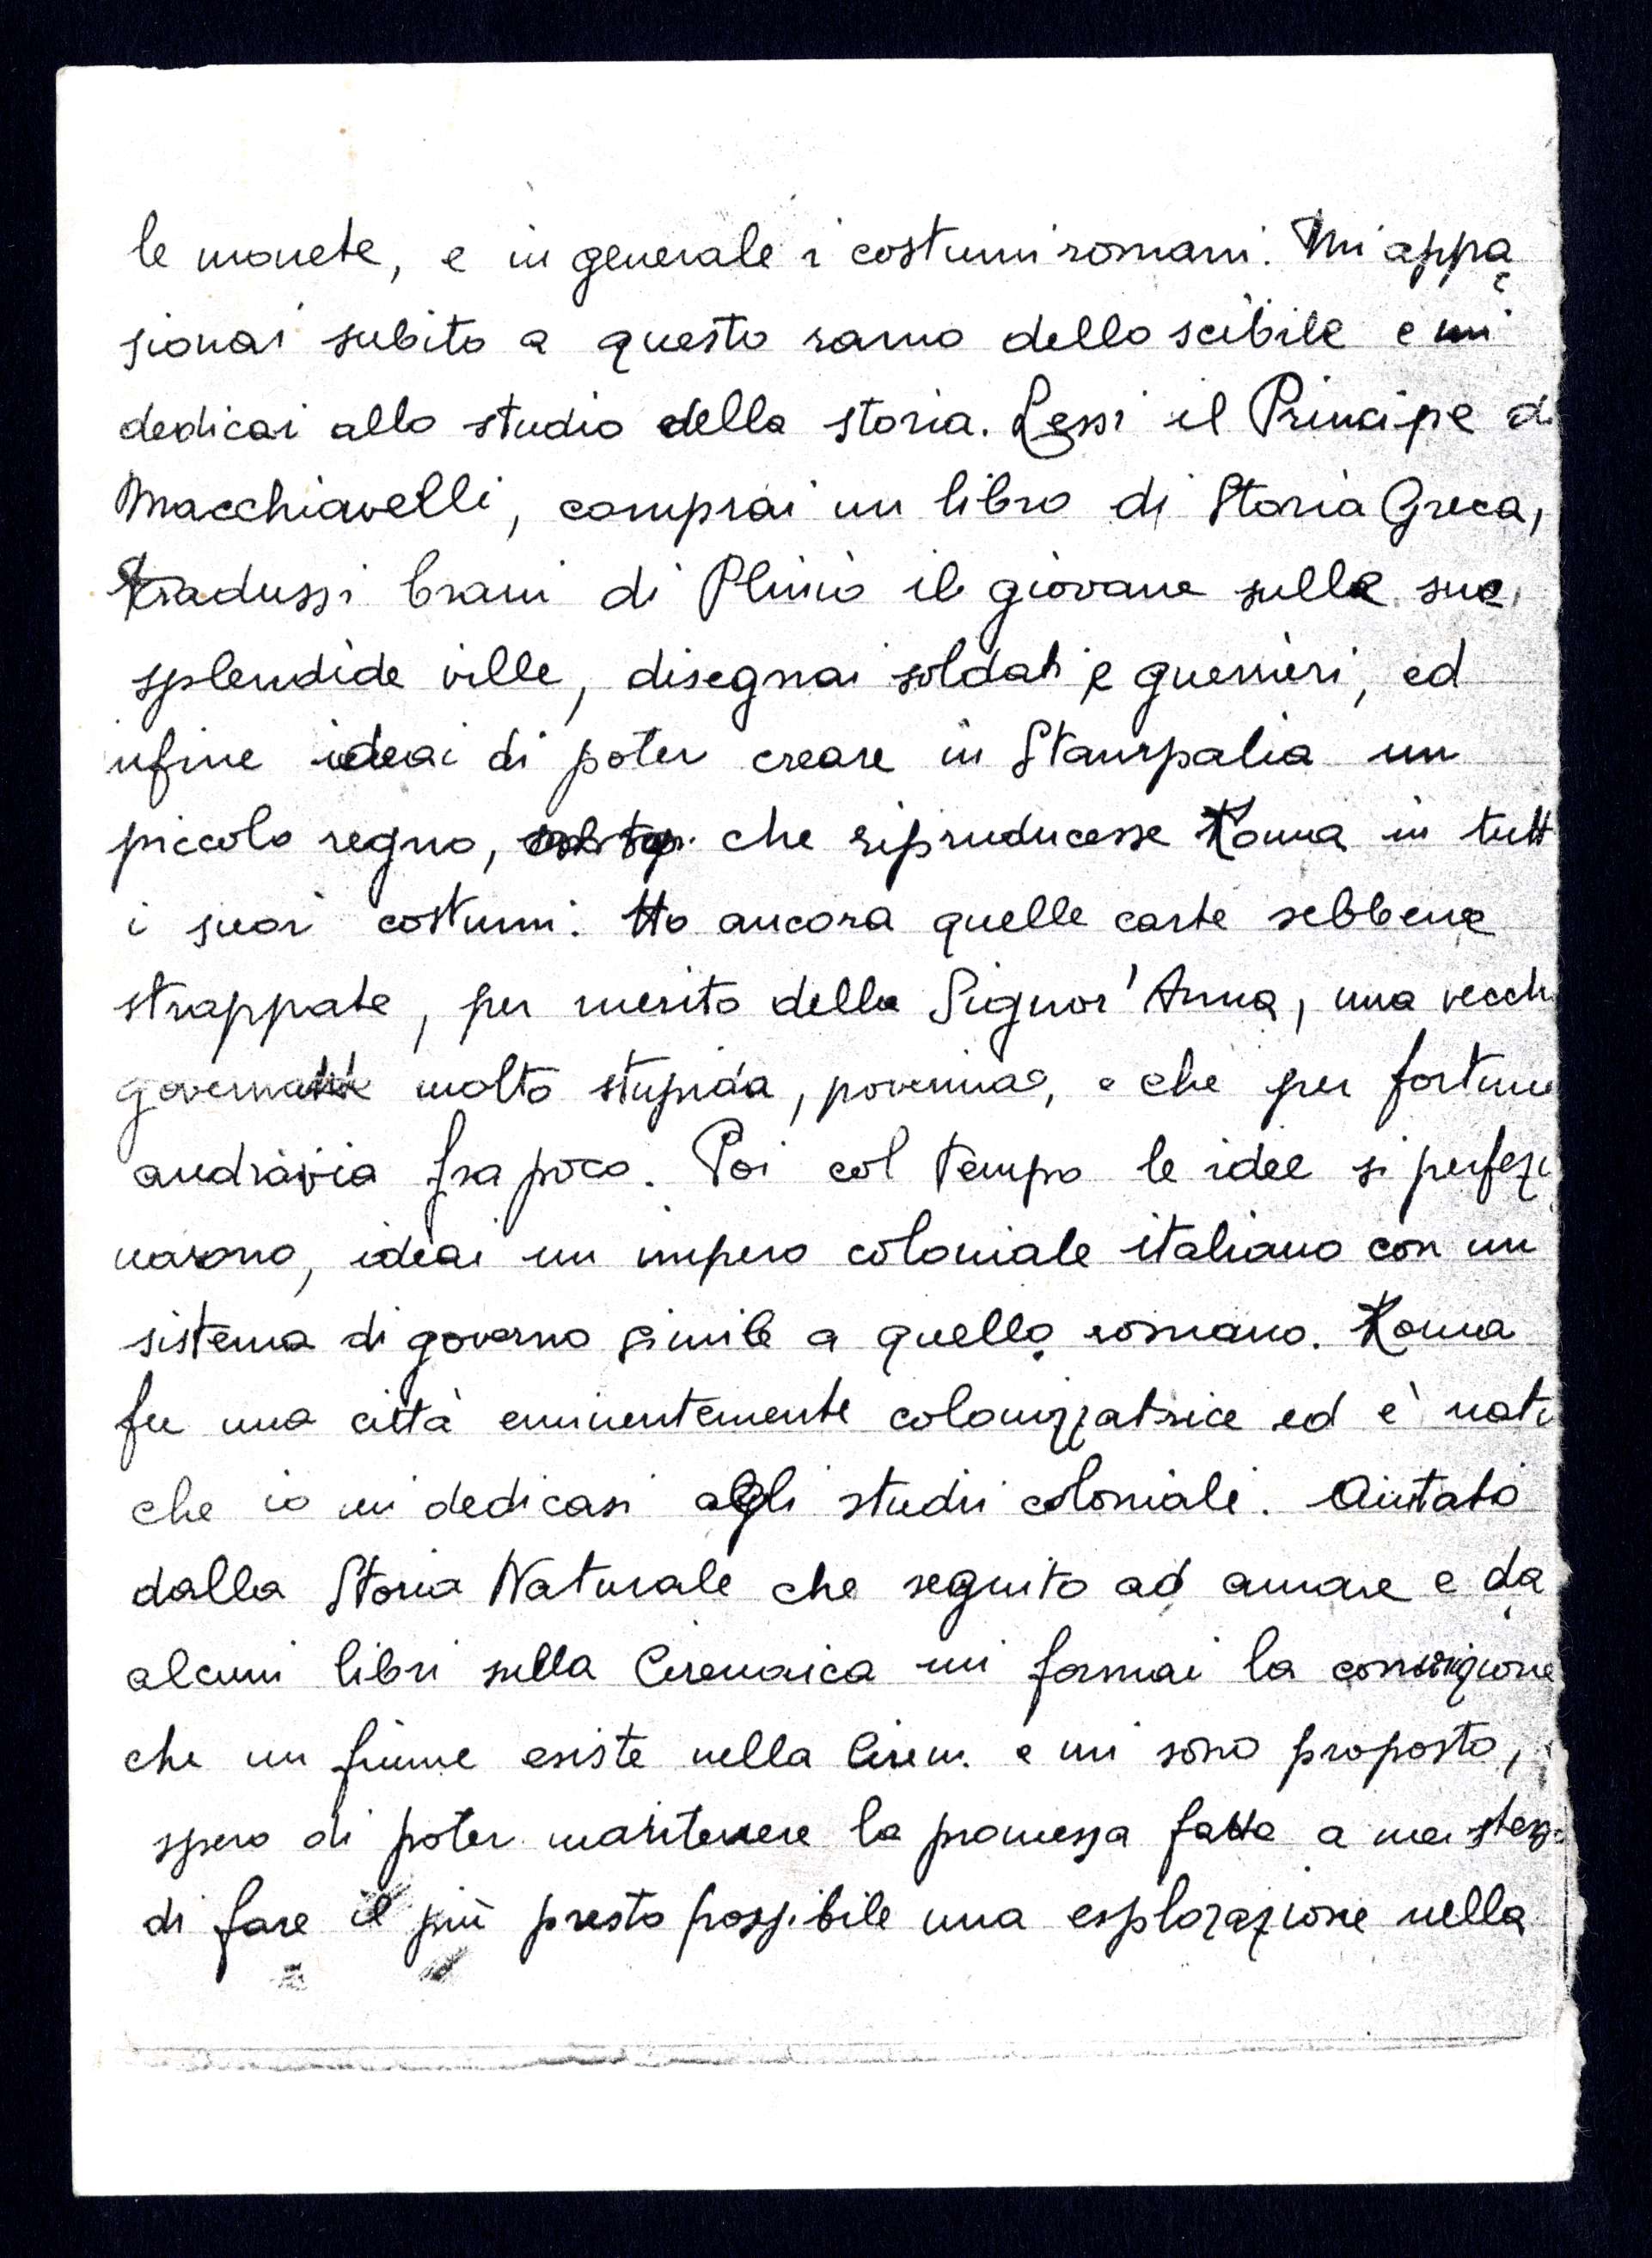 le monete, e in generale i costumi romani. Mi appa
sionai subito a questo ramo dello scibile e mi
dedicai allo studio della storia. Lessi il Principe di
Macchiavelli, comprai un libro di Storia Greca,
tradussi brani di Plinio il giovane sulle sue
splendide ville, disegnai soldati e guerrieri, ed
infine ideai di poter creare in Stampalia un
piccolo regno, che riproducesse Roma in tutt
i suoi costumi. Ho ancora quelle carte sebbene
strappate, per merito della Signor'Anna, una vecch
governante molto stupida, poverina, e che per fortuna
andrà via fra poco. Poi col tempo le idee si perfezi
narono, ideai un impero coloniale italiano con un
sistema di governo simile a quello romano. Roma
fu una città eminentemente colonizzatrice ed è natu
che io mi dedicasi agli studii coloniali. Aiutato
dalla Storia Naturale che seguito ad amare e da
alcuni libri sulla Cirenaica mi formai la convinzione
che un fiume esiste nella Ciren. e mi sono proposto,
spero di poter mantenere la promessa fatta a me stesso
di fare il più presto possibile una esplorazione nella